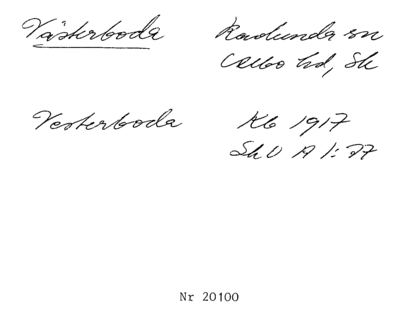 Västerboda Kadunda sn
Albo hd, Sk
Vesterboda Kb 1917
SkU A 1:77
Nr 20100